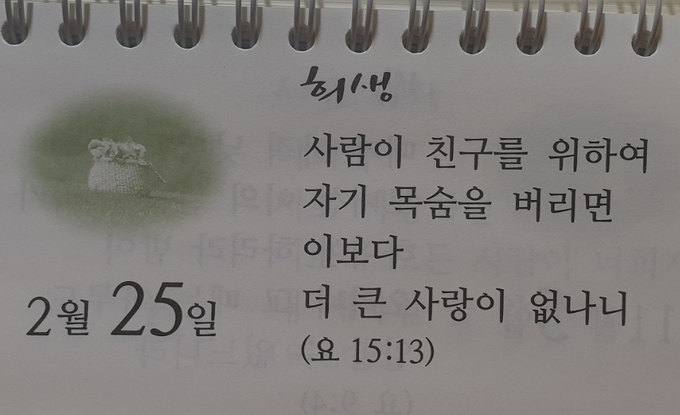 희생
사람이 친구를 위하여
자기 목숨을 버리면
이보다
더 큰 사랑이 없나니
(요 15:13)
2월 25일